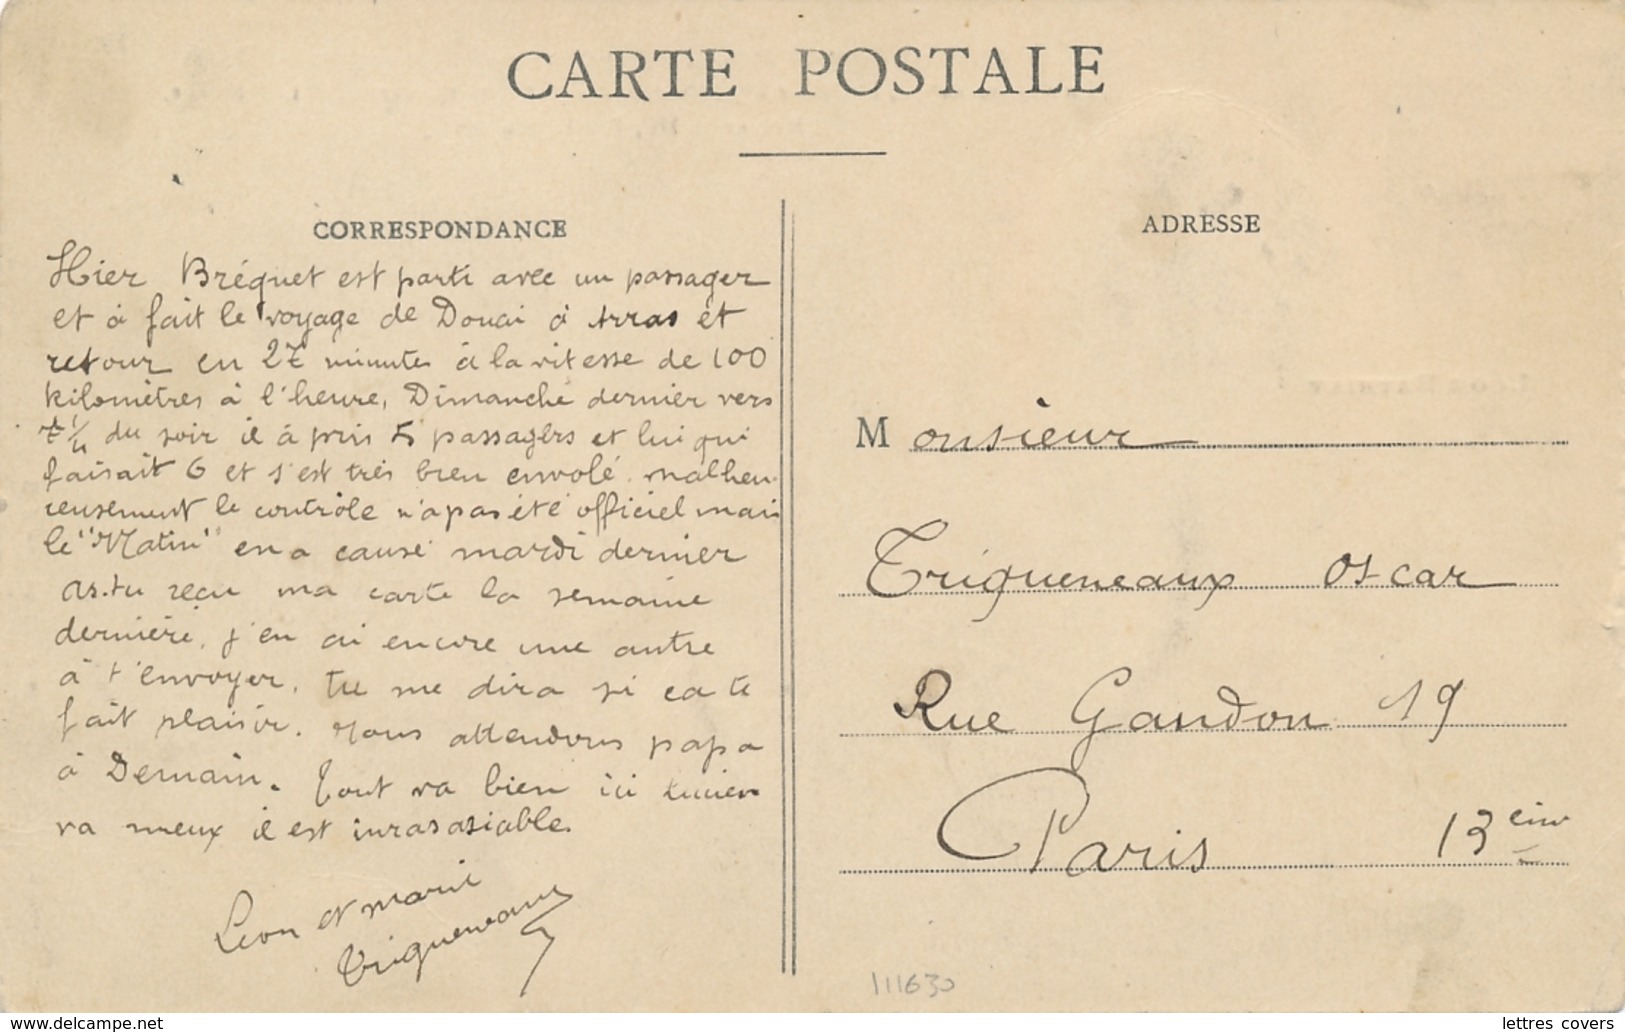 CARTE POSTALE
CORRESPONDANCE
Hier Bréguet est parti avec un passager
et à fait le voyage de Douai à Arras et
retour en 27 minutes à la vitesse de 100
kilomètres à l'heure, Dimanche dernier vers
7 1/4 du soir il à pris 5 passagers et lui qui
faisait 6 et s'est très bien envolé. malheu-
reusement le contrôle n'a pas été officiel mais
le "Matin" en a causé mardi dernier
as-tu reçu ma carte la semaine
dernière, j'en ai encore une autre
à t'envoyer, tu me dira si ca te
fait plaisir. Nous attendons papa
à Demain. Tout va bien ici Lucien
va mieux il est inrasasiable.
Léon et Marie
Trigueneaux
ADRESSE
Monsieur
Trigueneaux Oscar
Rue Gandon 19
Paris 13eme
111630
lettres covers